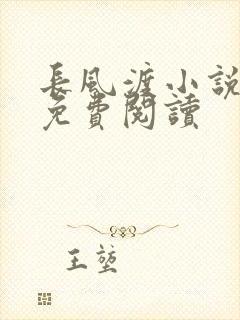 長風渡小說
免費閱讀
王莹